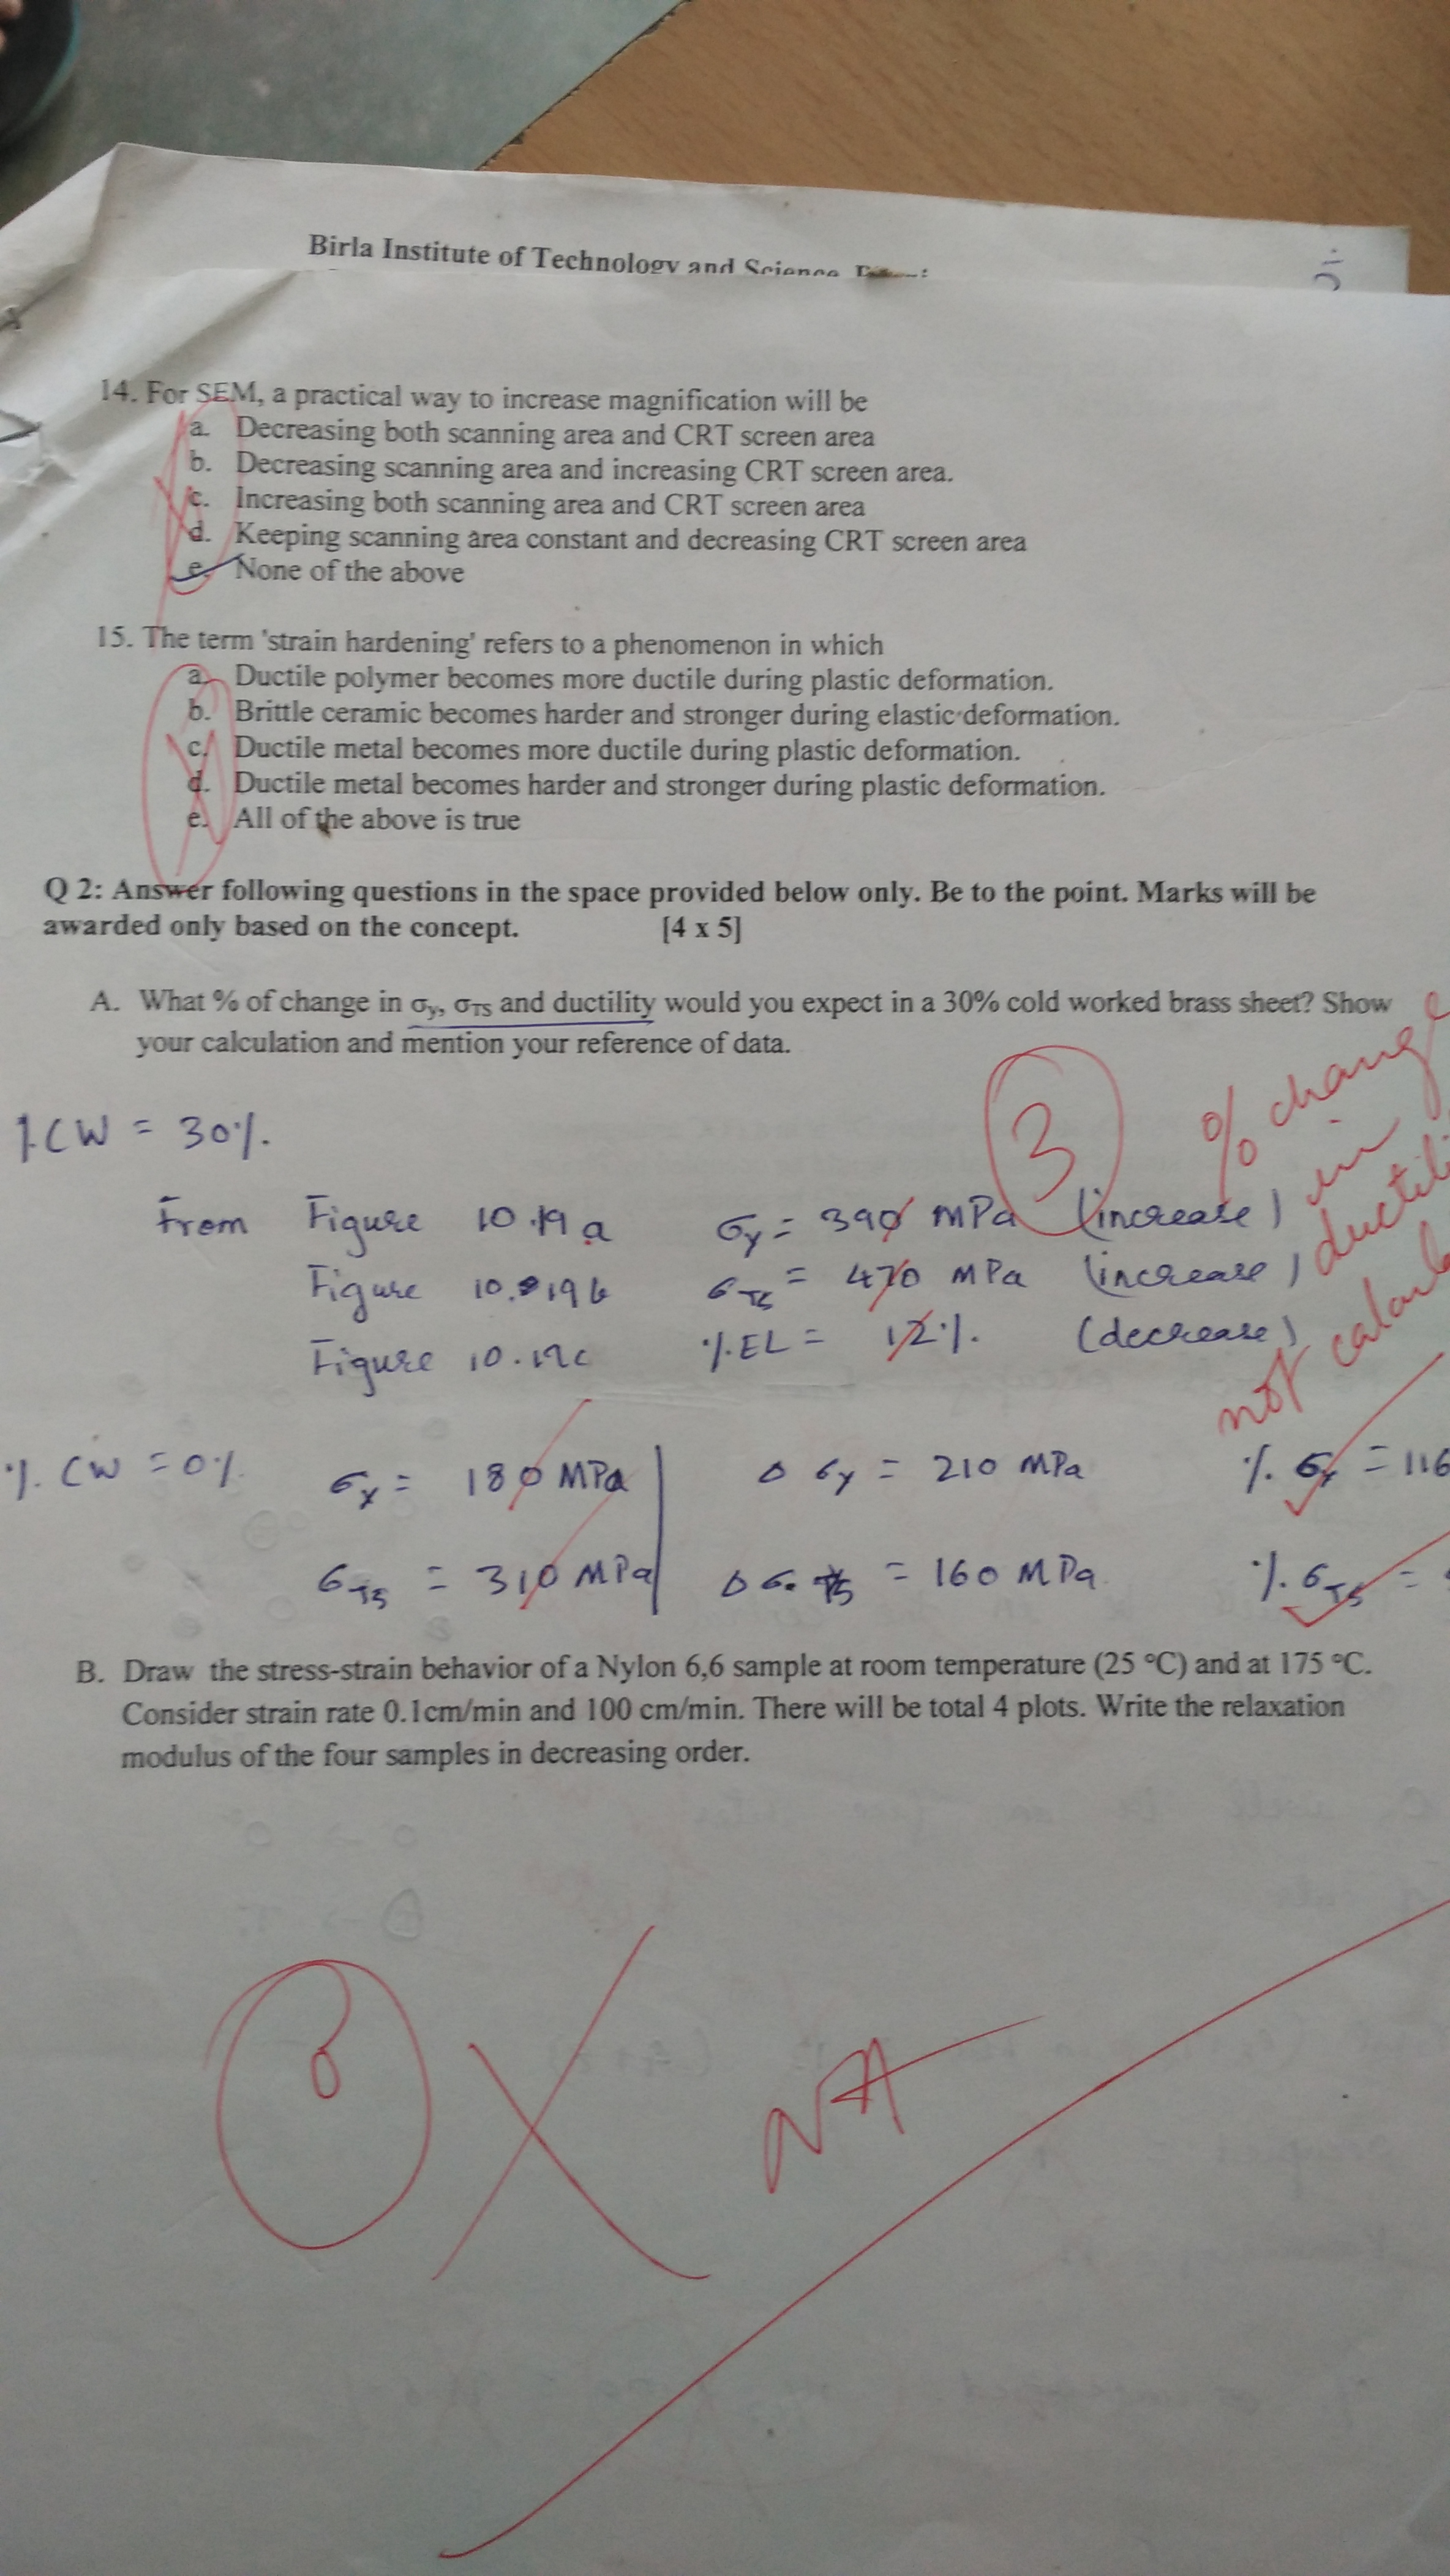 Birla Institute of Technology and Science
14. For SEM, a practical way to increase magnification will be
a. Decreasing both scanning area and CRT screen area
b. Decreasing scanning area and increasing CRT screen area.
c. Increasing both scanning area and CRT screen area
d. Keeping scanning area constant and decreasing CRT screen area
e. None of the above
15. The term 'strain hardening' refers to a phenomenon in which
a. Ductile polymer becomes more ductile during plastic deformation.
b. Brittle ceramic becomes harder and stronger during elastic deformation.
c. Ductile metal becomes more ductile during plastic deformation.
d. Ductile metal becomes harder and stronger during plastic deformation.
e. All of the above is true
Q 2: Answer following questions in the space provided below only. Be to the point. Marks will be
awarded only based on the concept. [4 x 5]
A. What % of change in σy, σTS and ductility would you expect in a 30% cold worked brass sheet? Show
your calculation and mention your reference of data.
3
% change
in
ductili
not calcul
% CW = 30%.
From Figure 10.19a σy = 390 MPa (increase)
Figure 10.19b σTS = 470 MPa (increase)
Figure 10.19c %EL = 12%. (decrease)
% CW = 0% σy = 180 MPa Δσy = 210 MPa % σy = 116
σTS = 310 MPa ΔσTS = 160 MPa % σTS =
B. Draw the stress-strain behavior of a Nylon 6,6 sample at room temperature (25 °C) and at 175 °C.
Consider strain rate 0.1cm/min and 100 cm/min. There will be total 4 plots. Write the relaxation
modulus of the four samples in decreasing order.
0 NA